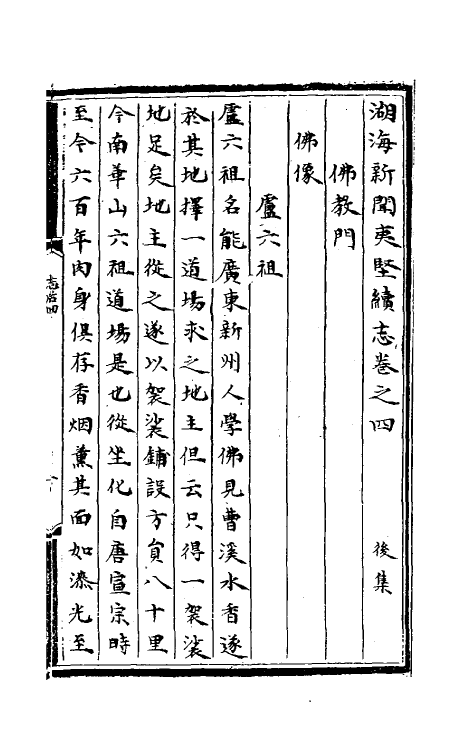 湖海新聞夷堅續志卷之四 後集
佛教門
佛像
盧六祖
盧六祖名能廣東新州人學佛見曹溪水香遂
於其地擇一道場求之地主但云只得一袈裟
地足矣地主從之遂以袈裟鋪設方員八十里
今南華山六祖道場是也從坐化自唐宣宗時
至今六百年肉身俱存香烟薰其面如漆光至